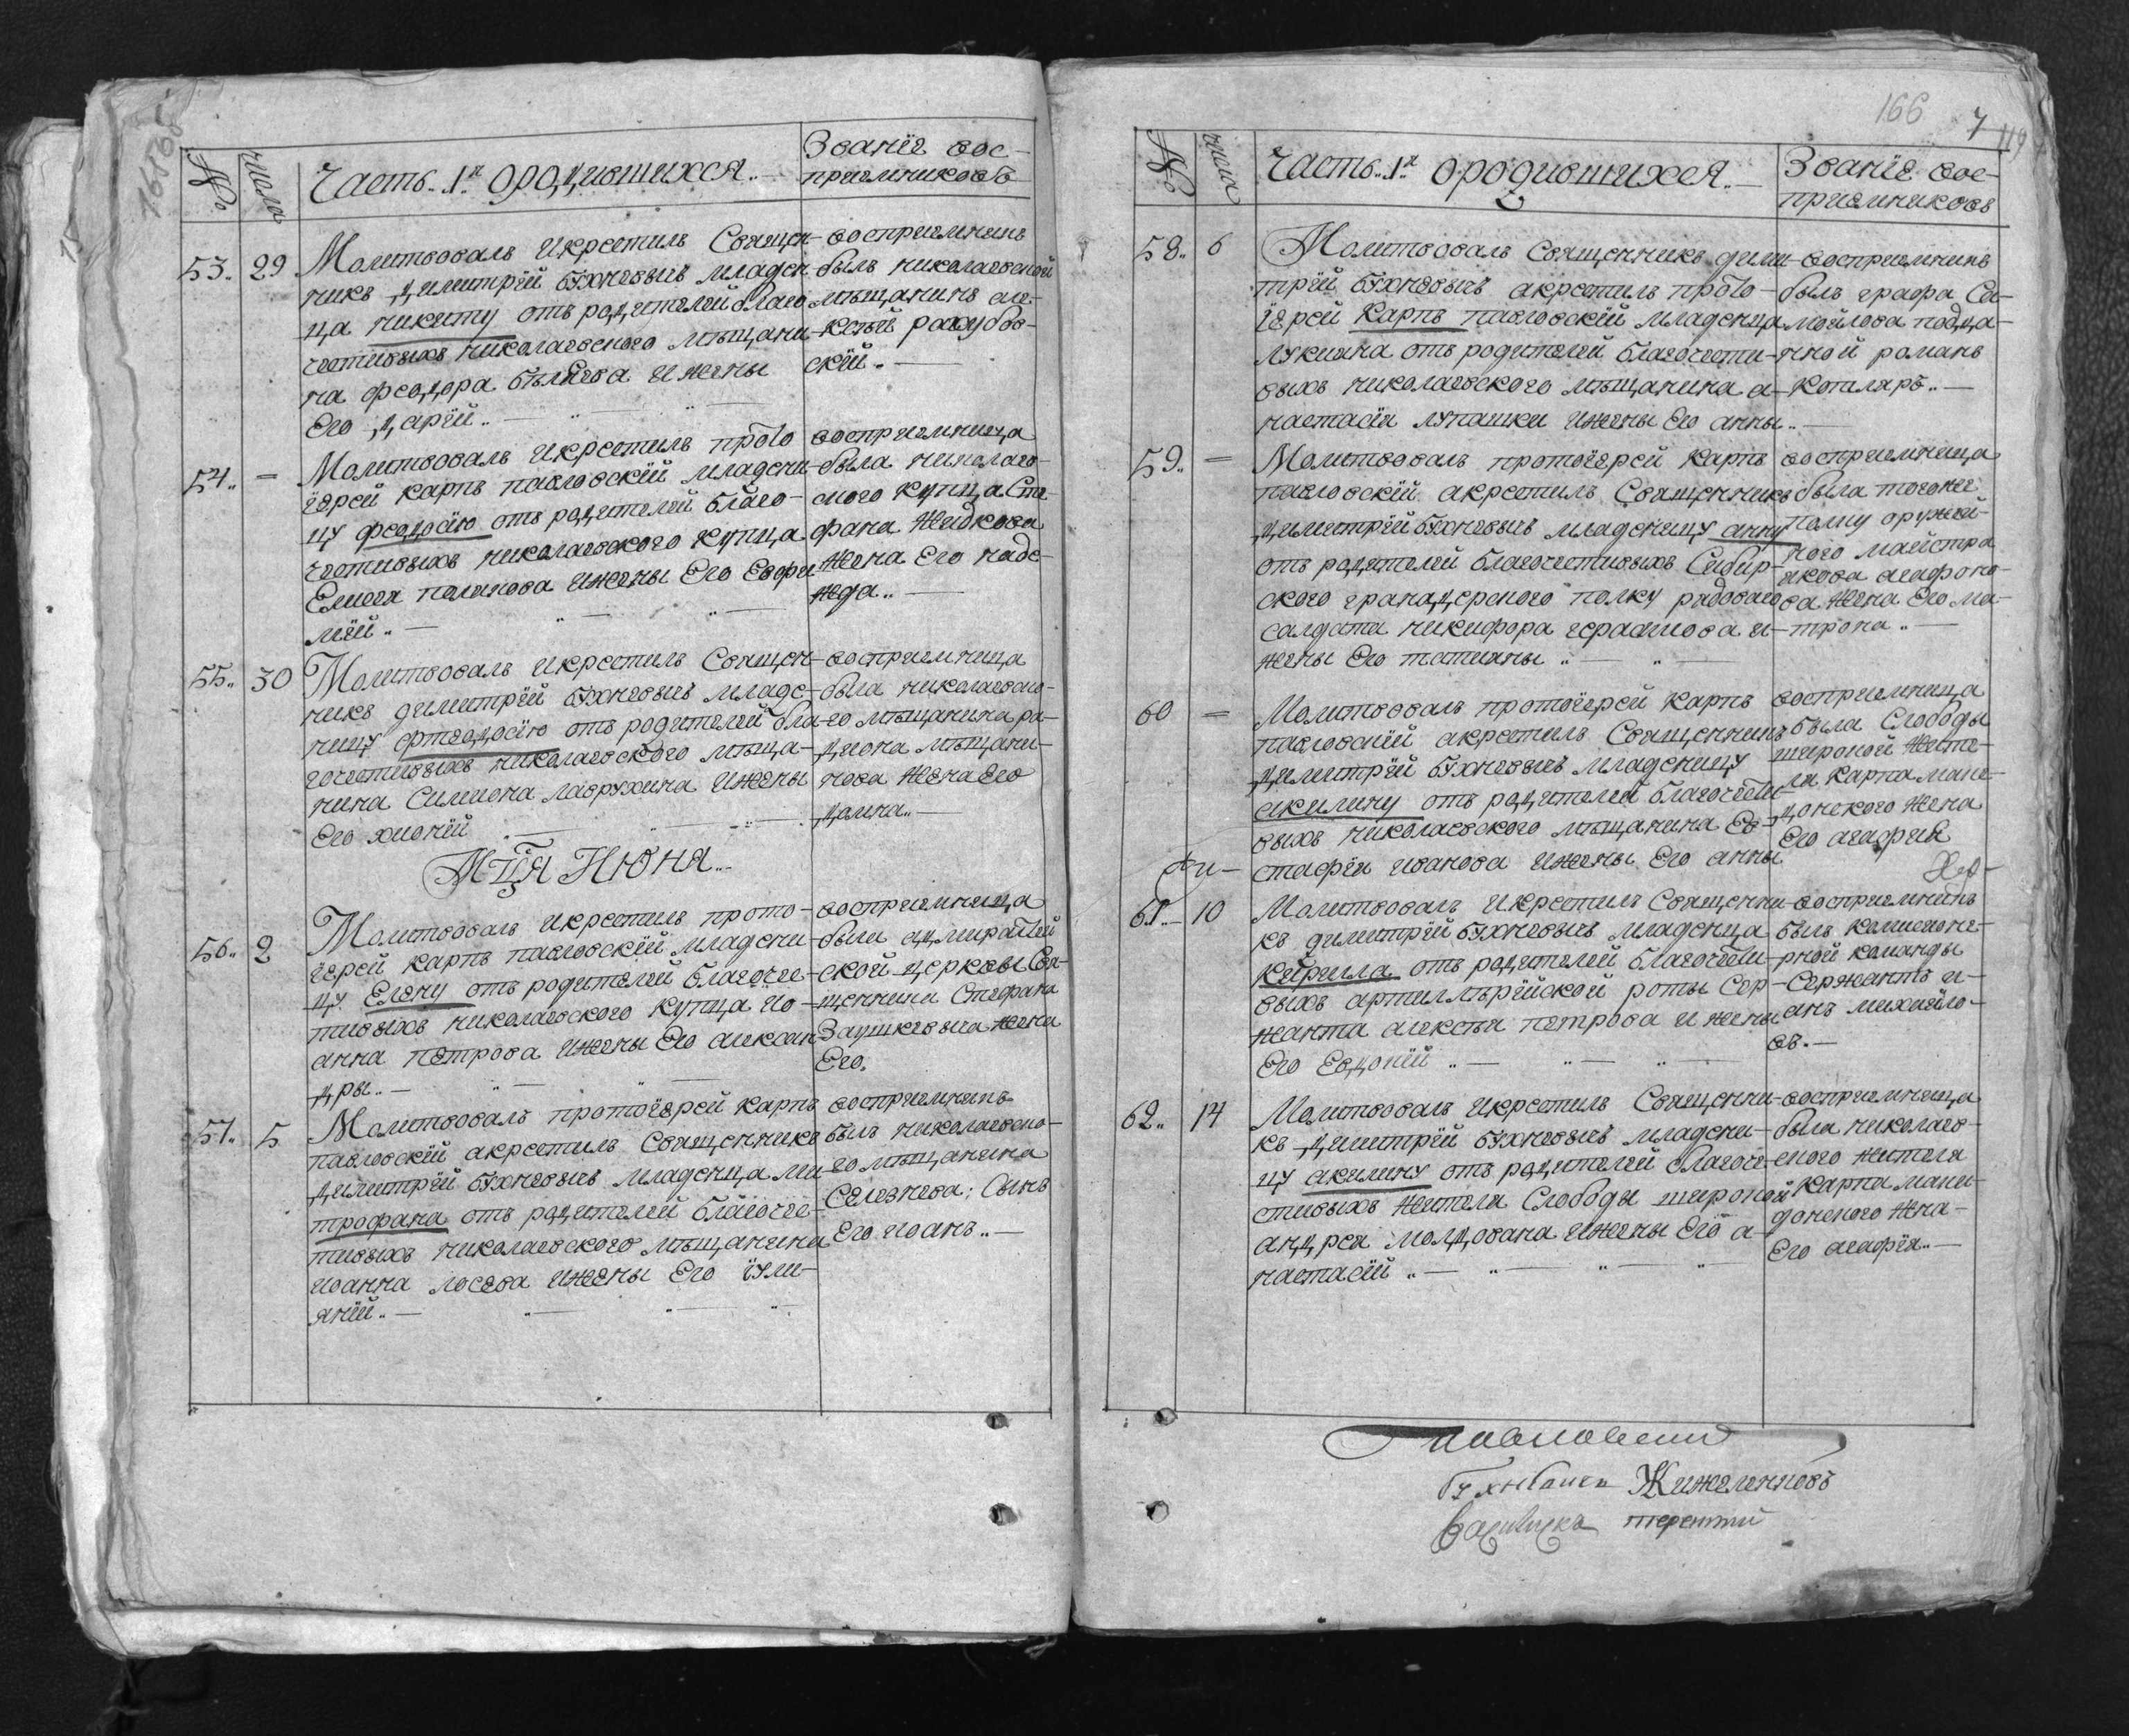 №
числа
Часть 1я о родившихся
Званіе вос-
приемниковъ
53.
29
Молитвовалъ и крестилъ Священ-
никъ димитрій Бухневичъ младен-
ца никиту отъ родителей благо-
честивыхъ николаевского мѣщани-
на феодора бѣляева и жены
Его дарїи
восприемникъ
былъ николаевской
мѣщанинъ але-
ксѣй
скій
54.
Молитвовалъ и крестилъ прото
іерей карпъ павловскїй младени-
цу феодосію отъ родителей благо-
честивыхъ николаевского купца
полякова и жены Его Евфи
міи
восприемница
была николаев-
ского купца Сте-
фана жидкова
жена Его наде-
жда
55.
30
Молитвовалъ и крестилъ Священ-
никъ димитрій Бухневичъ младе-
ницу феодосію отъ родителей бла-
гочестивыхъ николаевского мѣща-
нина Симиона лаврухина и жены
Его хионїи
восприемница
была николаевско-
го мѣщанина ра-
диона мѣщани-
нова жена Его
домна
Мца Июня
56.
2
Молитвовалъ и крестилъ прото-
іерей карпъ павловскїй младени-
цу Елену отъ родителей благоче-
тивыхъ николаевского купца ио-
анна петрова и жены Его алексан-
дры
восприемница
были адмиралтей
ской церквы Свя-
щенники Стефана
Заушкевича жена
Его.
57.
5
Молитвовалъ протоіерей карпъ
павловскїй акрестилъ Священникъ
димитрїй Бухневичъ младенца ми-
трофана отъ родителей благоче-
тивыхъ николаевского мѣщанина
иоанна лосева и жены Его іули-
янїи
восприемникъ
былъ николаевско-
го мѣщанина
Селезнева: Сынъ
Его иоанъ
166
7
№
числа
Часть 1я о родившихся
Званїе вос-
приемниковъ
58.
6
Молитвовалъ Священникъ дими-
трїй Бухневичъ акрестилъ прото-
іерей Карпъ павловскїй младенца
лукиана отъ родителей благочести-
выхъ николаевского мѣщанина а-
настасїя лупашки и жены Его анны
восприемникъ
былъ графа Са-
мойлова подда-
нной романъ
Котляръ
59.
Молитвовалъ протоіерей карпъ
павловскїй акрестилъ Священникъ
димитрїй Бухневичъ младеницу анну
отъ родителей благочестивыхъ Сибир-
ского гранадерского полку рядоваго
салдата никифора герасимова и
жены Его татияны
восприемница
была тогоже
полку оружей-
ного майстра
якова агафоно-
ва жена Его ма-
трона
60
Молитвовалъ протоіерей карпъ
павловскїй акрестилъ Священникъ
димитрїй Бухневичъ младеницу
акилину отъ родителей благочести-
выхъ николаевского мѣщанина Ев-
стафїя иванова и жены Его анны
восприемница
была Слободы
широкой жите-
ля карпа маке-
донского жена
Его агафия
61.
10
Молитвовалъ и крестилъ Священни-
къ димитрїй Бухневичъ младенца
Кирила отъ родителей благочести-
выхъ артиллѣрїйской роты Сер-
жанта алексѣя петрова и жены
Его Евдокїи
восприемникъ
былъ комисионе-
рной команды
Сержантъ и-
анъ михайло-
въ.
62.
14
Молитвовалъ и крестилъ Священни-
къ димитрїй Бухневичъ младени-
цу акилину отъ родителей благоче-
стивыхъ жителя Слободы широкой
андрея молдована и жены Его а-
настасїи
восприемница
была николаев-
ского жителя
карпа маке-
донского жена
Его агафїя
Павловский
Жижеленковъ
терентий